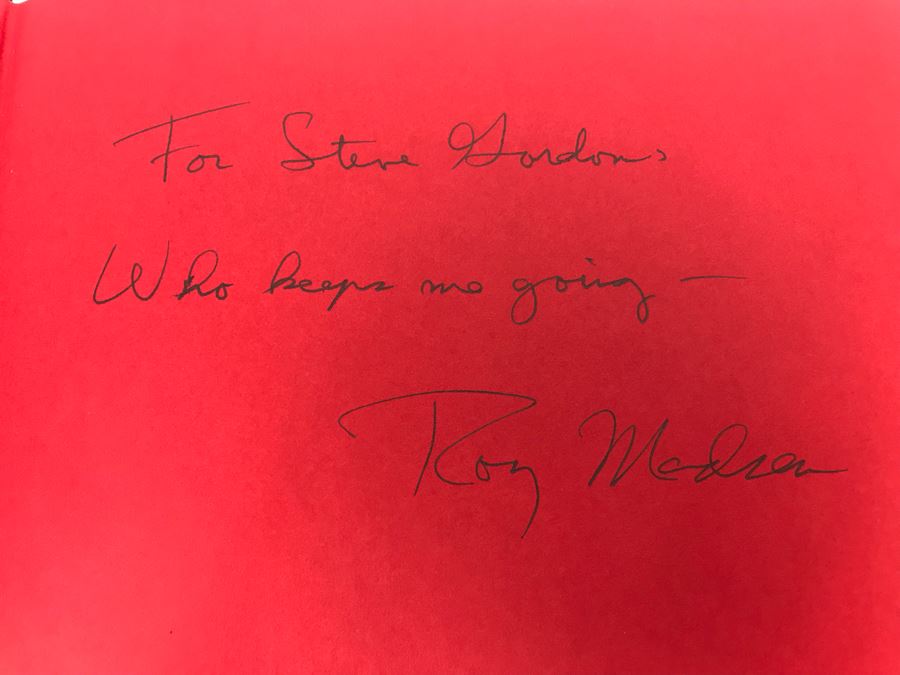 For Steve Gordon,
Who keeps me going —
Roy Madsen